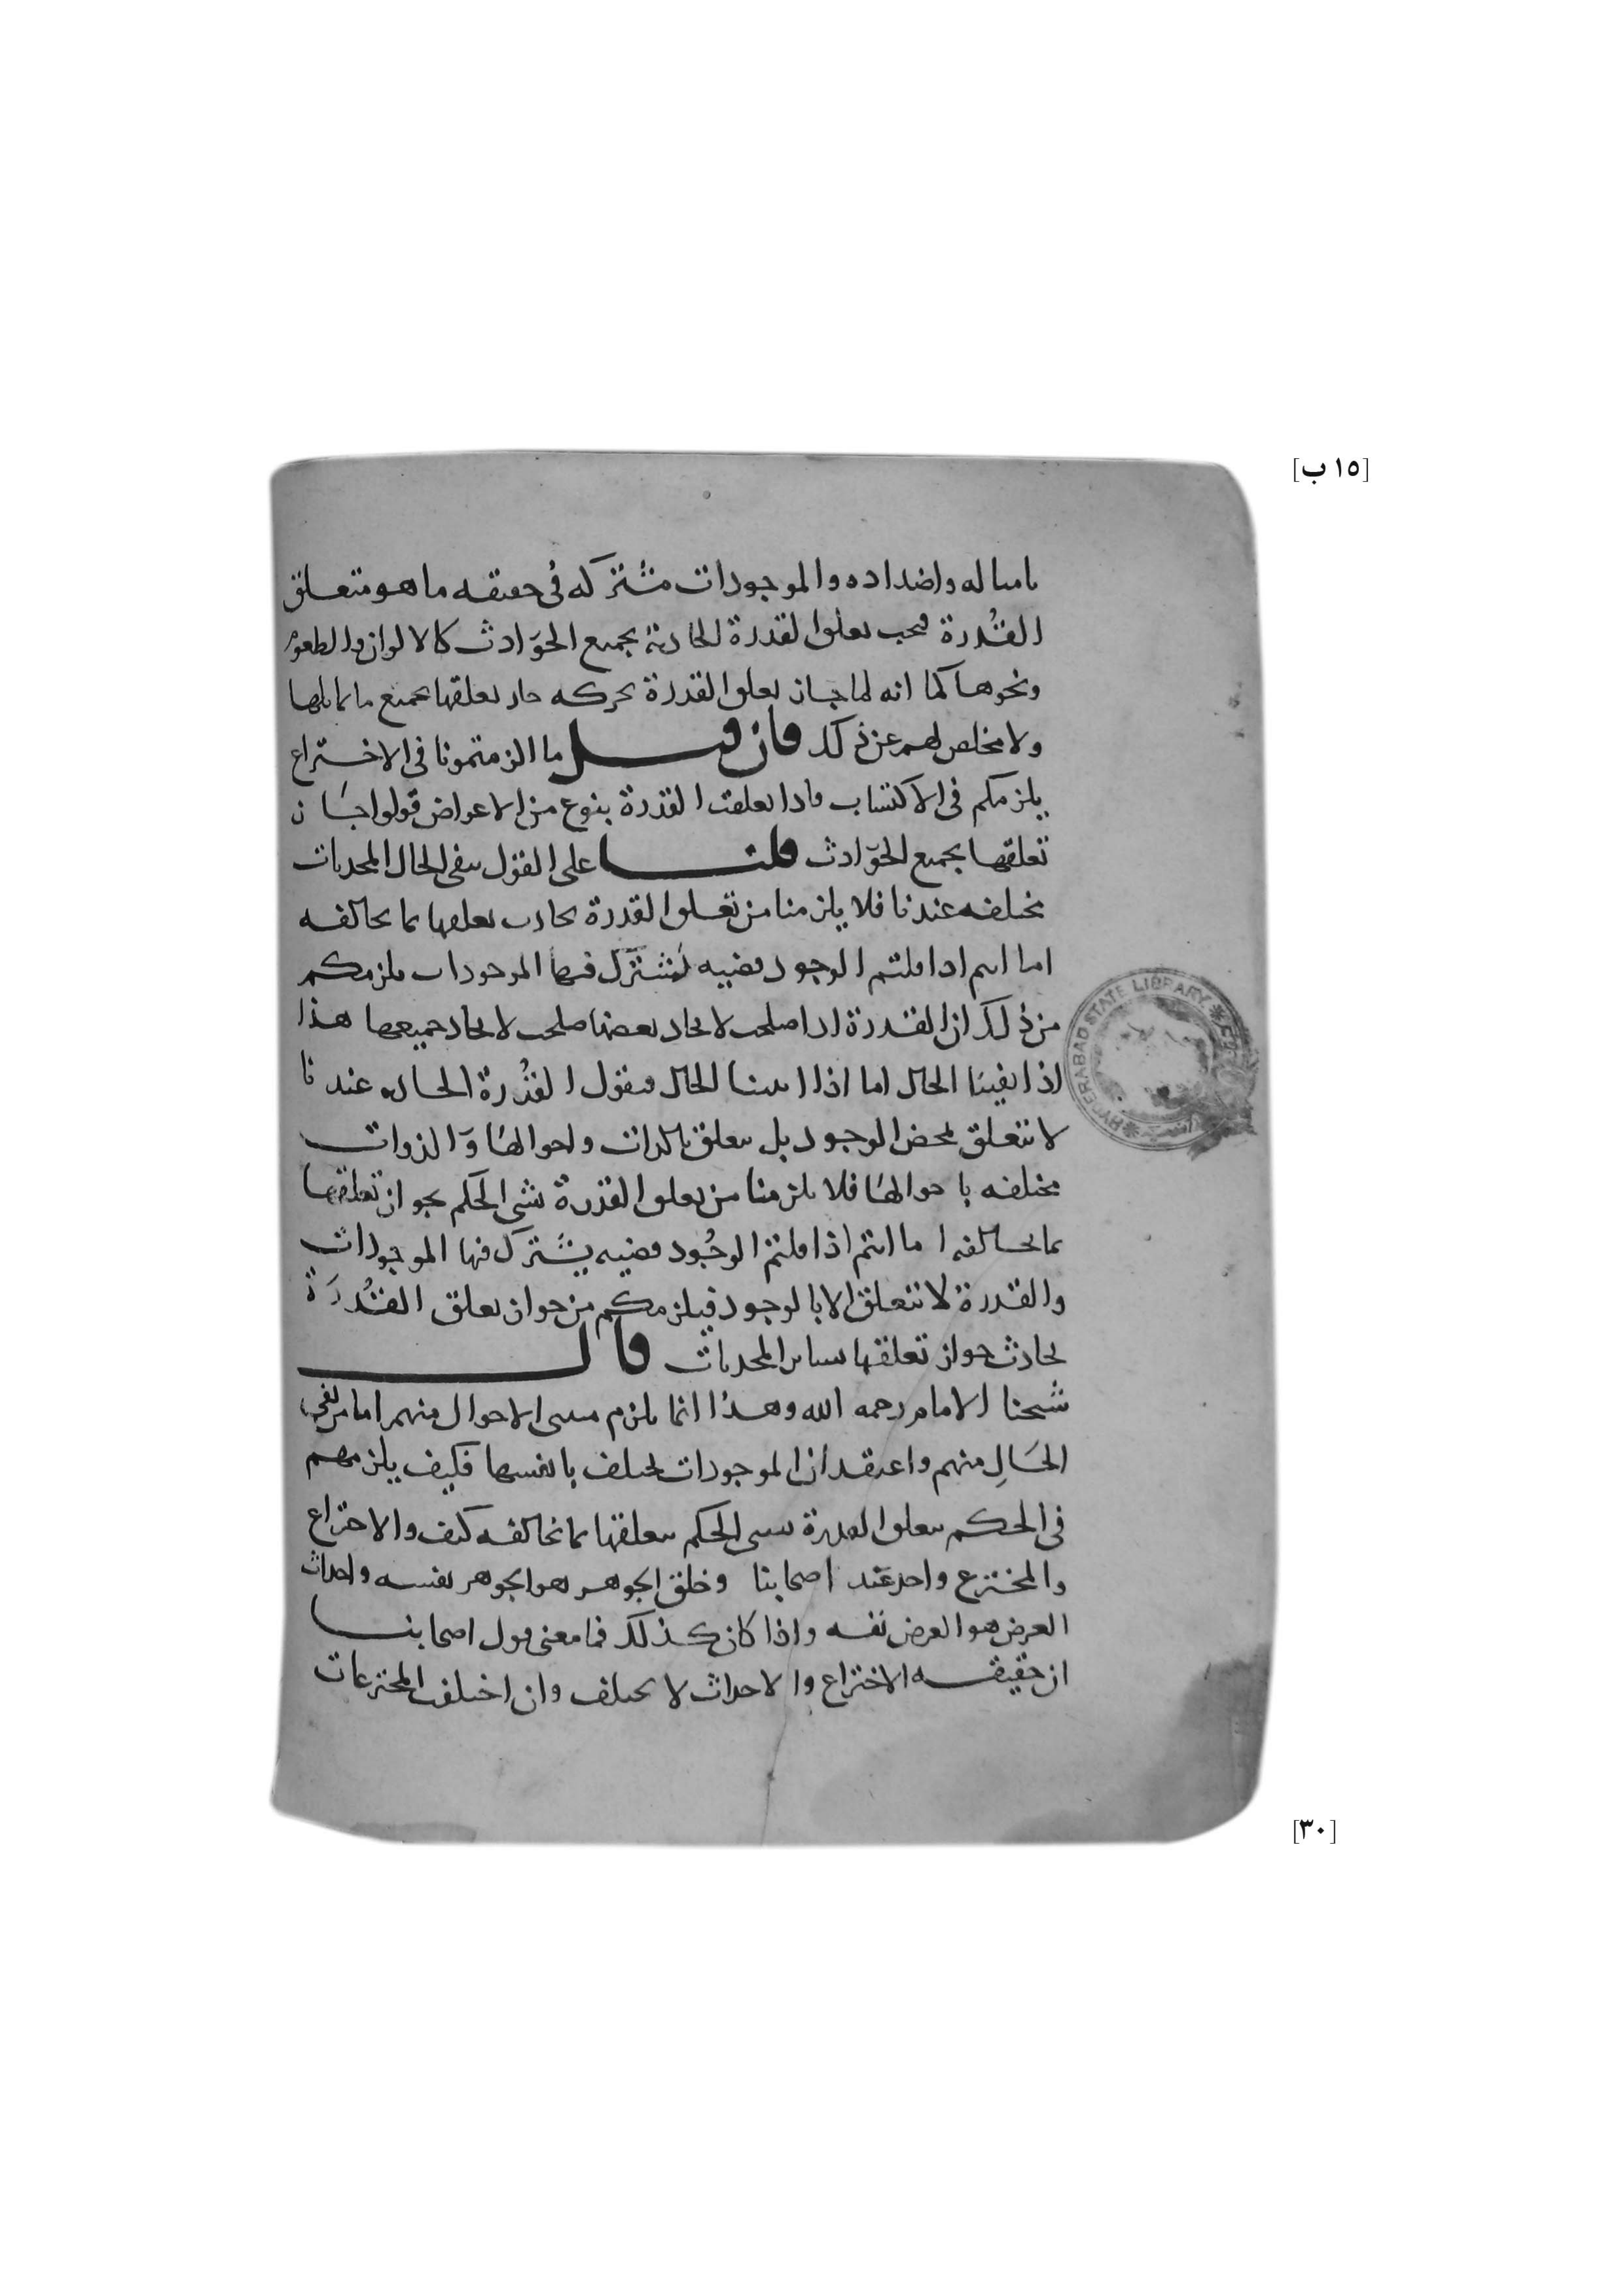 [١٥ ب]
بامثاله واضداده والموجودات مشتركه في حقيقه ما هو متعلق
القُدرة فيجب تعلق القدرة الحادثة بجميع الحوَادث كالالوان والطعوم
ونحوها كما انه لما جاز تعلق القدرة بحركه جاز تعلقها بجميع ما يماثلها
ولا مخلص لهم عن ذلك فان قيل ما الزمتمونا في الاختراع
يلزمكم في الاكتساب فاذا تعلقت القدرة بنوع من الاعراض قولوا جَاز
تعلقها بجميع الحوَادث قلنا على القول بنفي الحال المحدثات
مختلفه عندنا فلا يلزمنا من تعلق القدرة بحادث تعلقها بما يخالفه
اما انتم اذا قلتم الوجود قضيه تشترك فيها الموجودات يلزمكم
من ذلك ان القدرة اذا صلحت لايجاد بعضها صلحت لايجاد جميعها هذا
اذا نفينا الحال اما اذا اثبتنا الحال فنقول القُدرة الحادثه عندنا
لا تتعلق بمحض الوجود بل تتعلق بالذات واحوالها وَالذوات
مختلفه باحوالها فلا يلزمنا من تعلق القدرة بشي الحكم بجواز تعلقها
بما يخالفه اما انتم اذا قلتم الوجُود قضيه يشترك فيها الموجودات
والقدرة لا تتعلق الا بالوجود فيلزمكم من جواز تعلق القُدرَة
بحادث جواز تعلقها بساير المحدثات قال
شيخنا الامام رحمه الله وهذا انما يلزم مثبتي الاحوال منهم اما من نفى
الحَالِ منهم واعتقد ان الموجودات تختلف بانفسها فكيف يلزمهم
في الحكم بتعلق القدرة بشي الحكم بتعلقها بما تخالفه كيف والاختراع
والمخترع واحد عند اصحابنا وخلق الجوهر هو الجوهر نفسه واحداث
العرض هو العرض نفسه واذا كان كذلك فما معنى قول اصحابنا
ان حقيقه الاختراع والاحداث لا تختلف وان اختلفت المخترعات
HYDERABAD STATE LIBRARY
[٣٠]